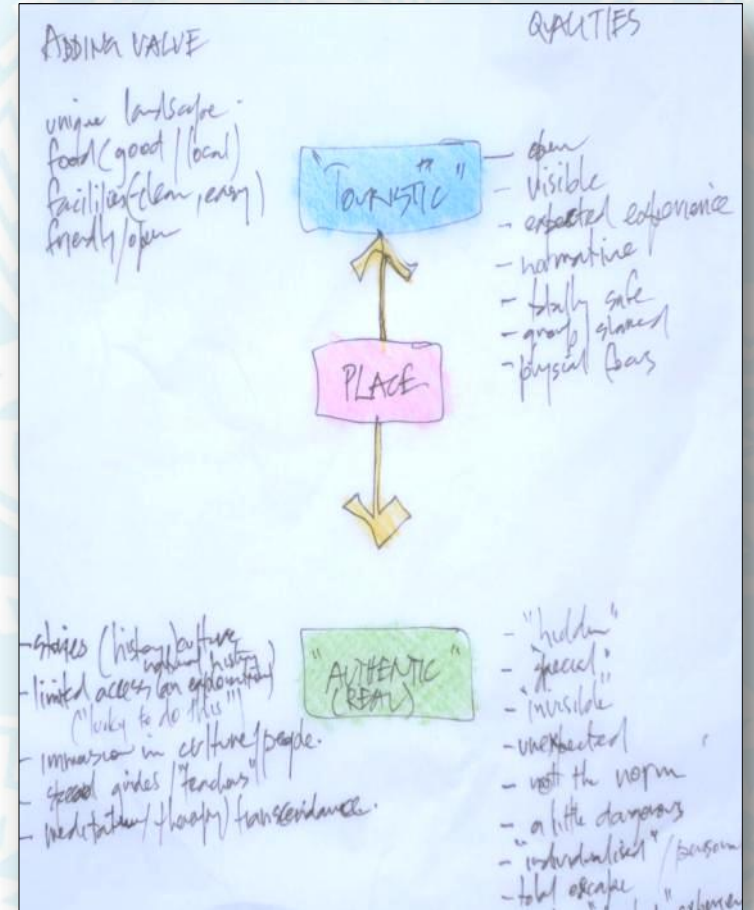 ADDING VALUE
unique landscape.
food (good / local)
facilities (clean, easy)
friendly / open
QUALITIES
- open
- visible
- expected experience
- normative
- totally safe
- group / shared
- physical focus
"TOURISTIC"
PLACE
"AUTHENTIC"
(REAL)
- stories (history / culture
natural history)
- limited access (an exploration)
("lucky to do this")
- immersion in culture / people.
- guides / "teachers"
- meditation / therapy / transcendance.
- "hidden"
- "special"
- "invisible"
- unexpected
- not the norm
- a little dangerous
- "individualised" /
- total escape